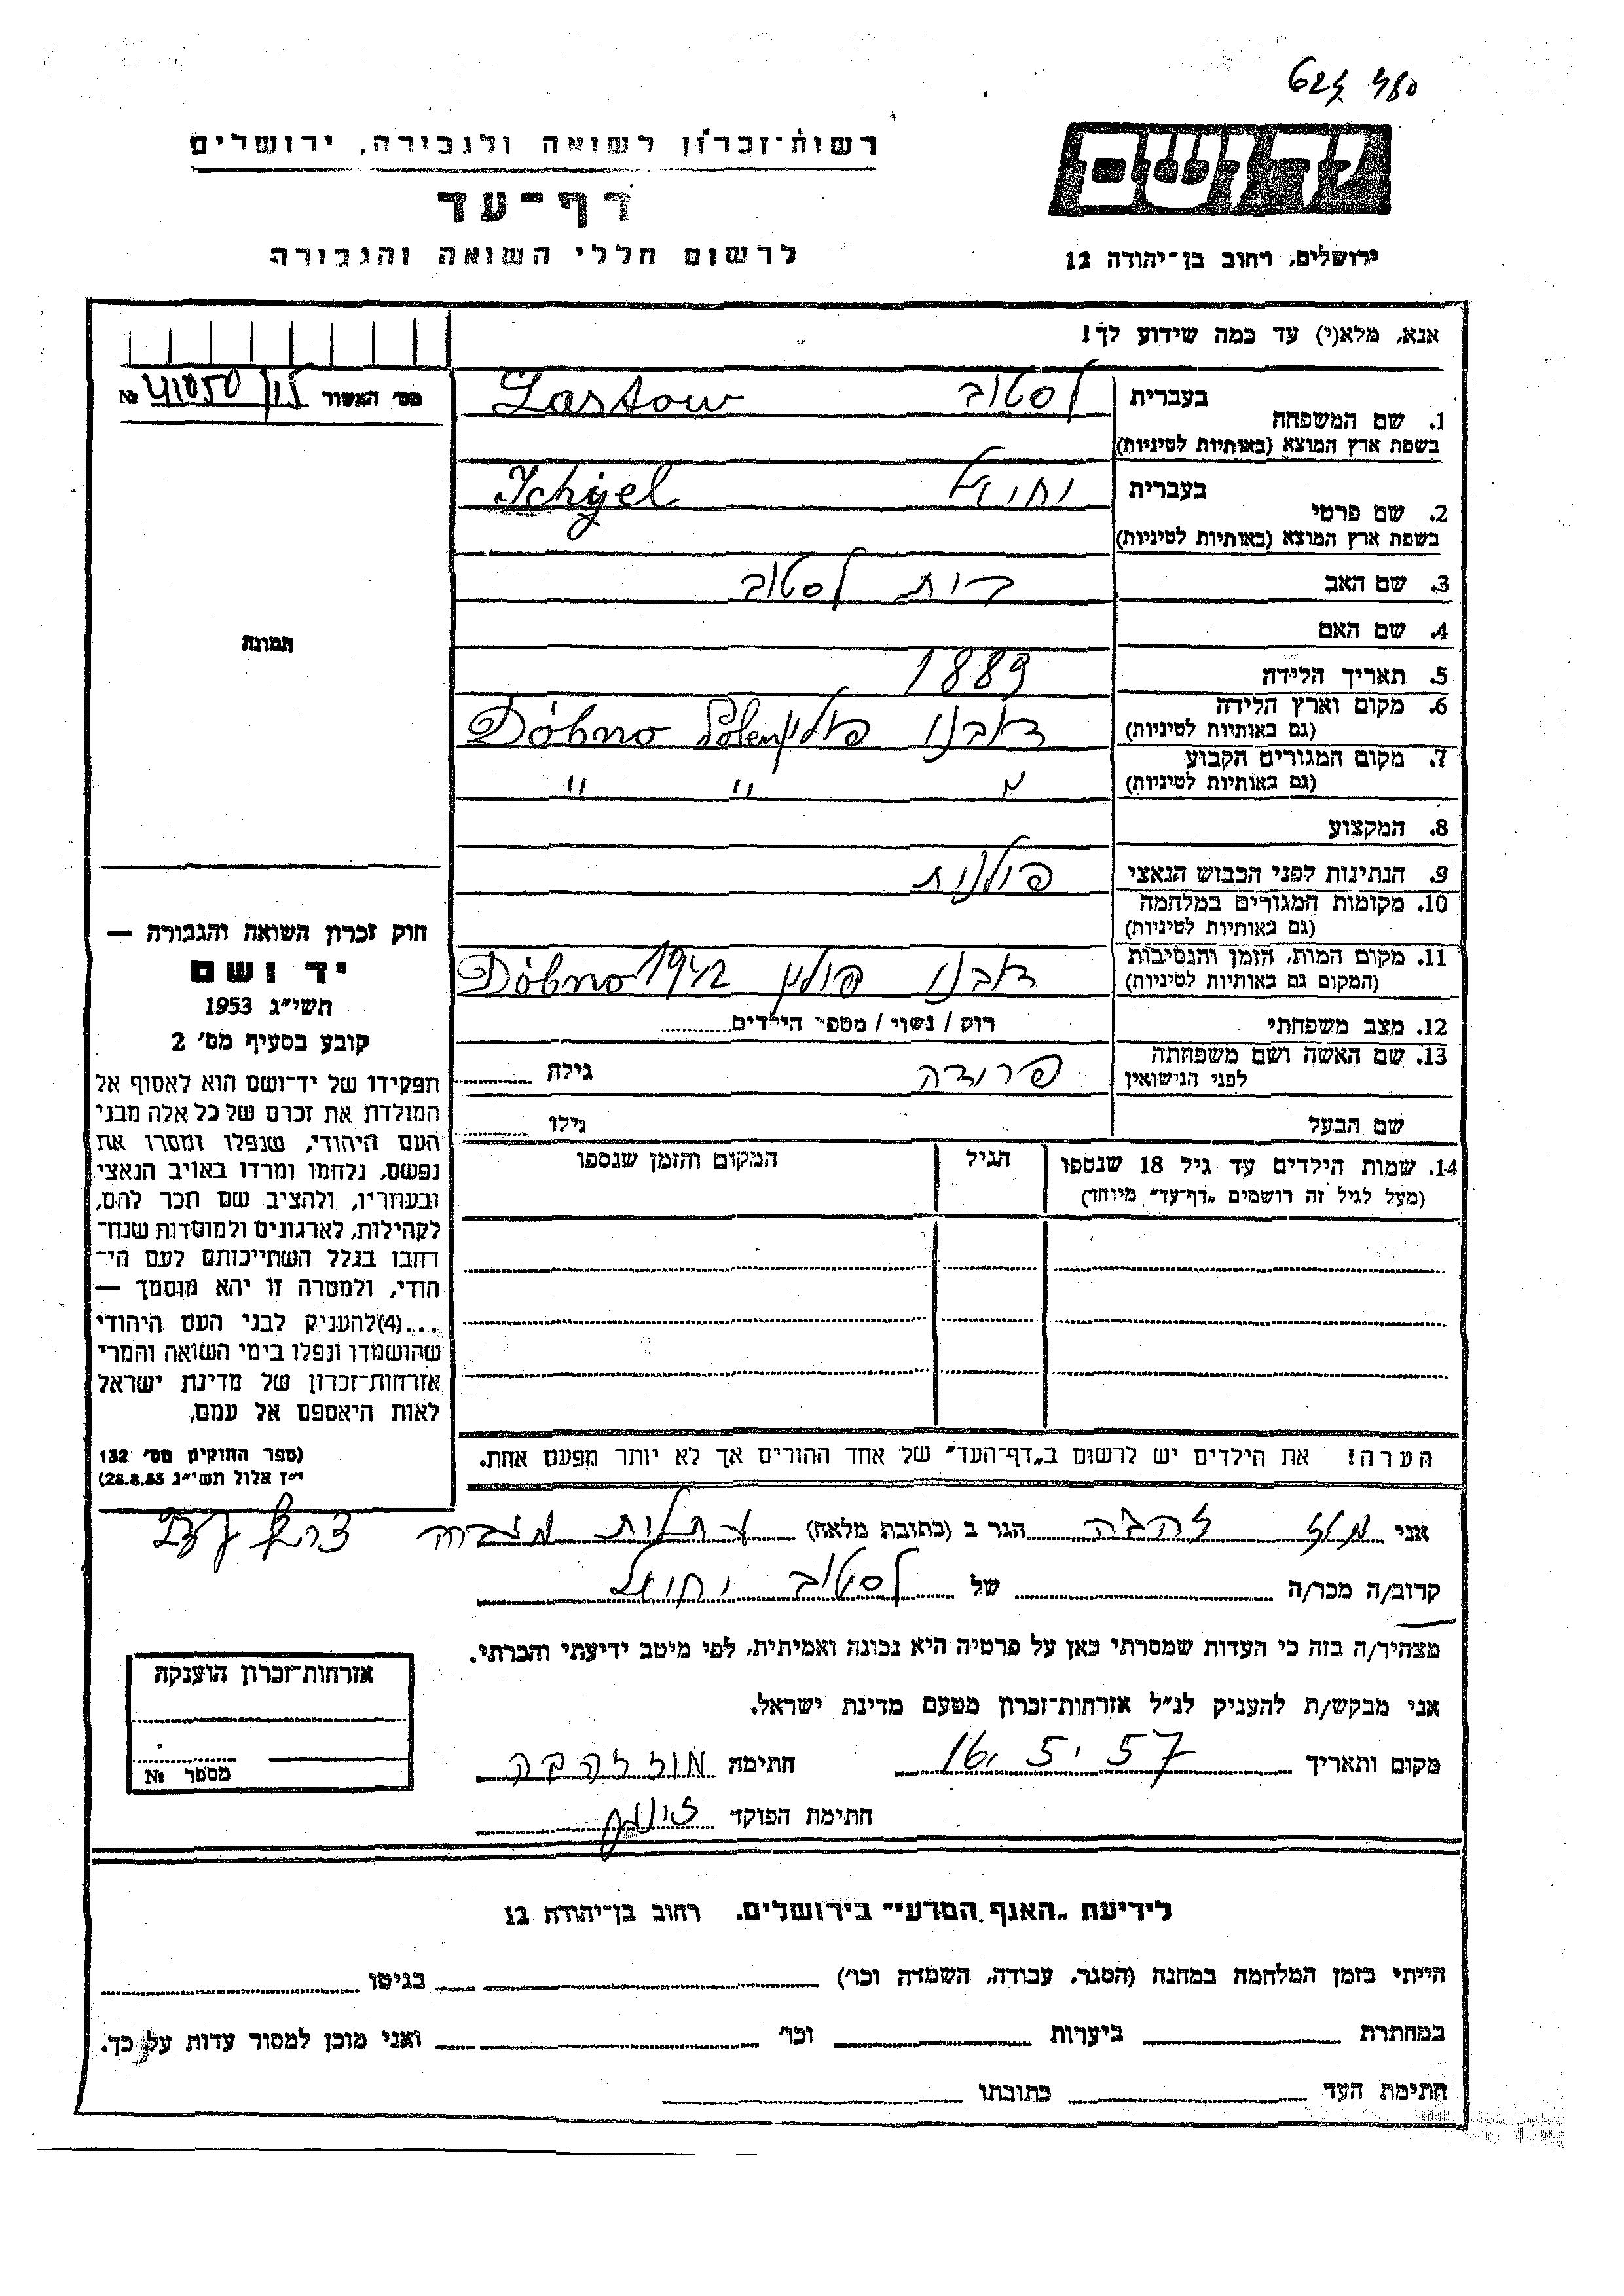 רשות־זכרון לשואה ולגבורה, ירושלים
דף־עד
לרשום חללי השואה והגבורה
יד ושם
ירושלים, רחוב בן־יהודה 12
אנא, מלא(י) עד כמה שידוע לך!
מס׳ האשור № 41050
1. שם המשפחה בעברית לסטוב Lastow
בשפת ארץ המוצא (באותיות לטיניות)
2. שם פרטי בעברית יחיאל Ichijel
בשפת ארץ המוצא (באותיות לטיניות)
3. שם האב לסטוב
4. שם האם
5. תאריך הלידה 1889
6. מקום וארץ הלידה דובנו פולין Polen Dóbno
(גם באותיות לטיניות)
7. מקום המגורים הקבוע " " "
(גם באותיות לטיניות)
8. המקצוע
9. הנתינות לפני הכבוש הנאצי פולנית
10. מקומות המגורים במלחמה
(גם באותיות לטיניות)
11. מקום המות, הזמן והנסיבות דובנו פולין 1942 Dóbno
(המקום גם באותיות לטיניות)
12. מצב משפחתי רוק / נשוי / מספר הילדים
13. שם האשה ושם משפחתה פרידה גילה
לפני הנישואין
שם הבעל גילו
14. שמות הילדים עד גיל 18 שנספו הגיל המקום והזמן שנספו
(מעל לגיל זה רושמים „דף־עד״ מיוחד)
הערה! את הילדים יש לרשום ב„דף־העד״ של אחד ההורים אך לא יותר מפעם אחת.
תמונה
חוק זכרון השואה והגבורה —
יד ושם
תשי״ג 1953
קובע בסעיף מס׳ 2
תפקידו של יד־ושם הוא לאסוף אל
המולדת את זכרם של כל אלה מבני
העם היהודי, שנפלו ומסרו את
נפשם, נלחמו ומרדו באויב הנאצי
ובעוזריו, ולהציב שם וזכר להם,
לקהילות, לארגונים ולמוסדות שנח־
רבו בגלל השתייכותם לעם הי־
הודי, ולמטרה זו יהא מוסמך —
...(4)להעניק לבני העם היהודי
שהושמדו ונפלו בימי השואה והמרי
אזרחות־זכרון של מדינת ישראל
לאות היאספם אל עמם.
(ספר החוקים מס׳ 132
י״ז אלול תשי״ג 28.8.53)
אני מוז זהבה הגר ב (כתובת מלאה) עתלית
קרוב/ה מכר/ה של לסטוב יחיאל
מצהיר/ה בזה כי העדות שמסרתי כאן על פרטיה היא נכונה ואמיתית, לפי מיטב ידיעתי והכרתי.
אני מבקש/ת להעניק לנ״ל אזרחות־זכרון מטעם מדינת ישראל.
מקום ותאריך 16.5.57 חתימה מוז זהבה
חתימת הפוקד
אזרחות־זכרון הוענקה
מספר №
לידיעת „האגף המדעי״ בירושלים. רחוב בן־יהודה 12
הייתי בזמן המלחמה במחנה (הסגר, עבודה, השמדה וכו׳) בגיטו
במחתרת ביערות וכו׳ ואני מוכן למסור עדות על כך.
חתימת העד כתובתו